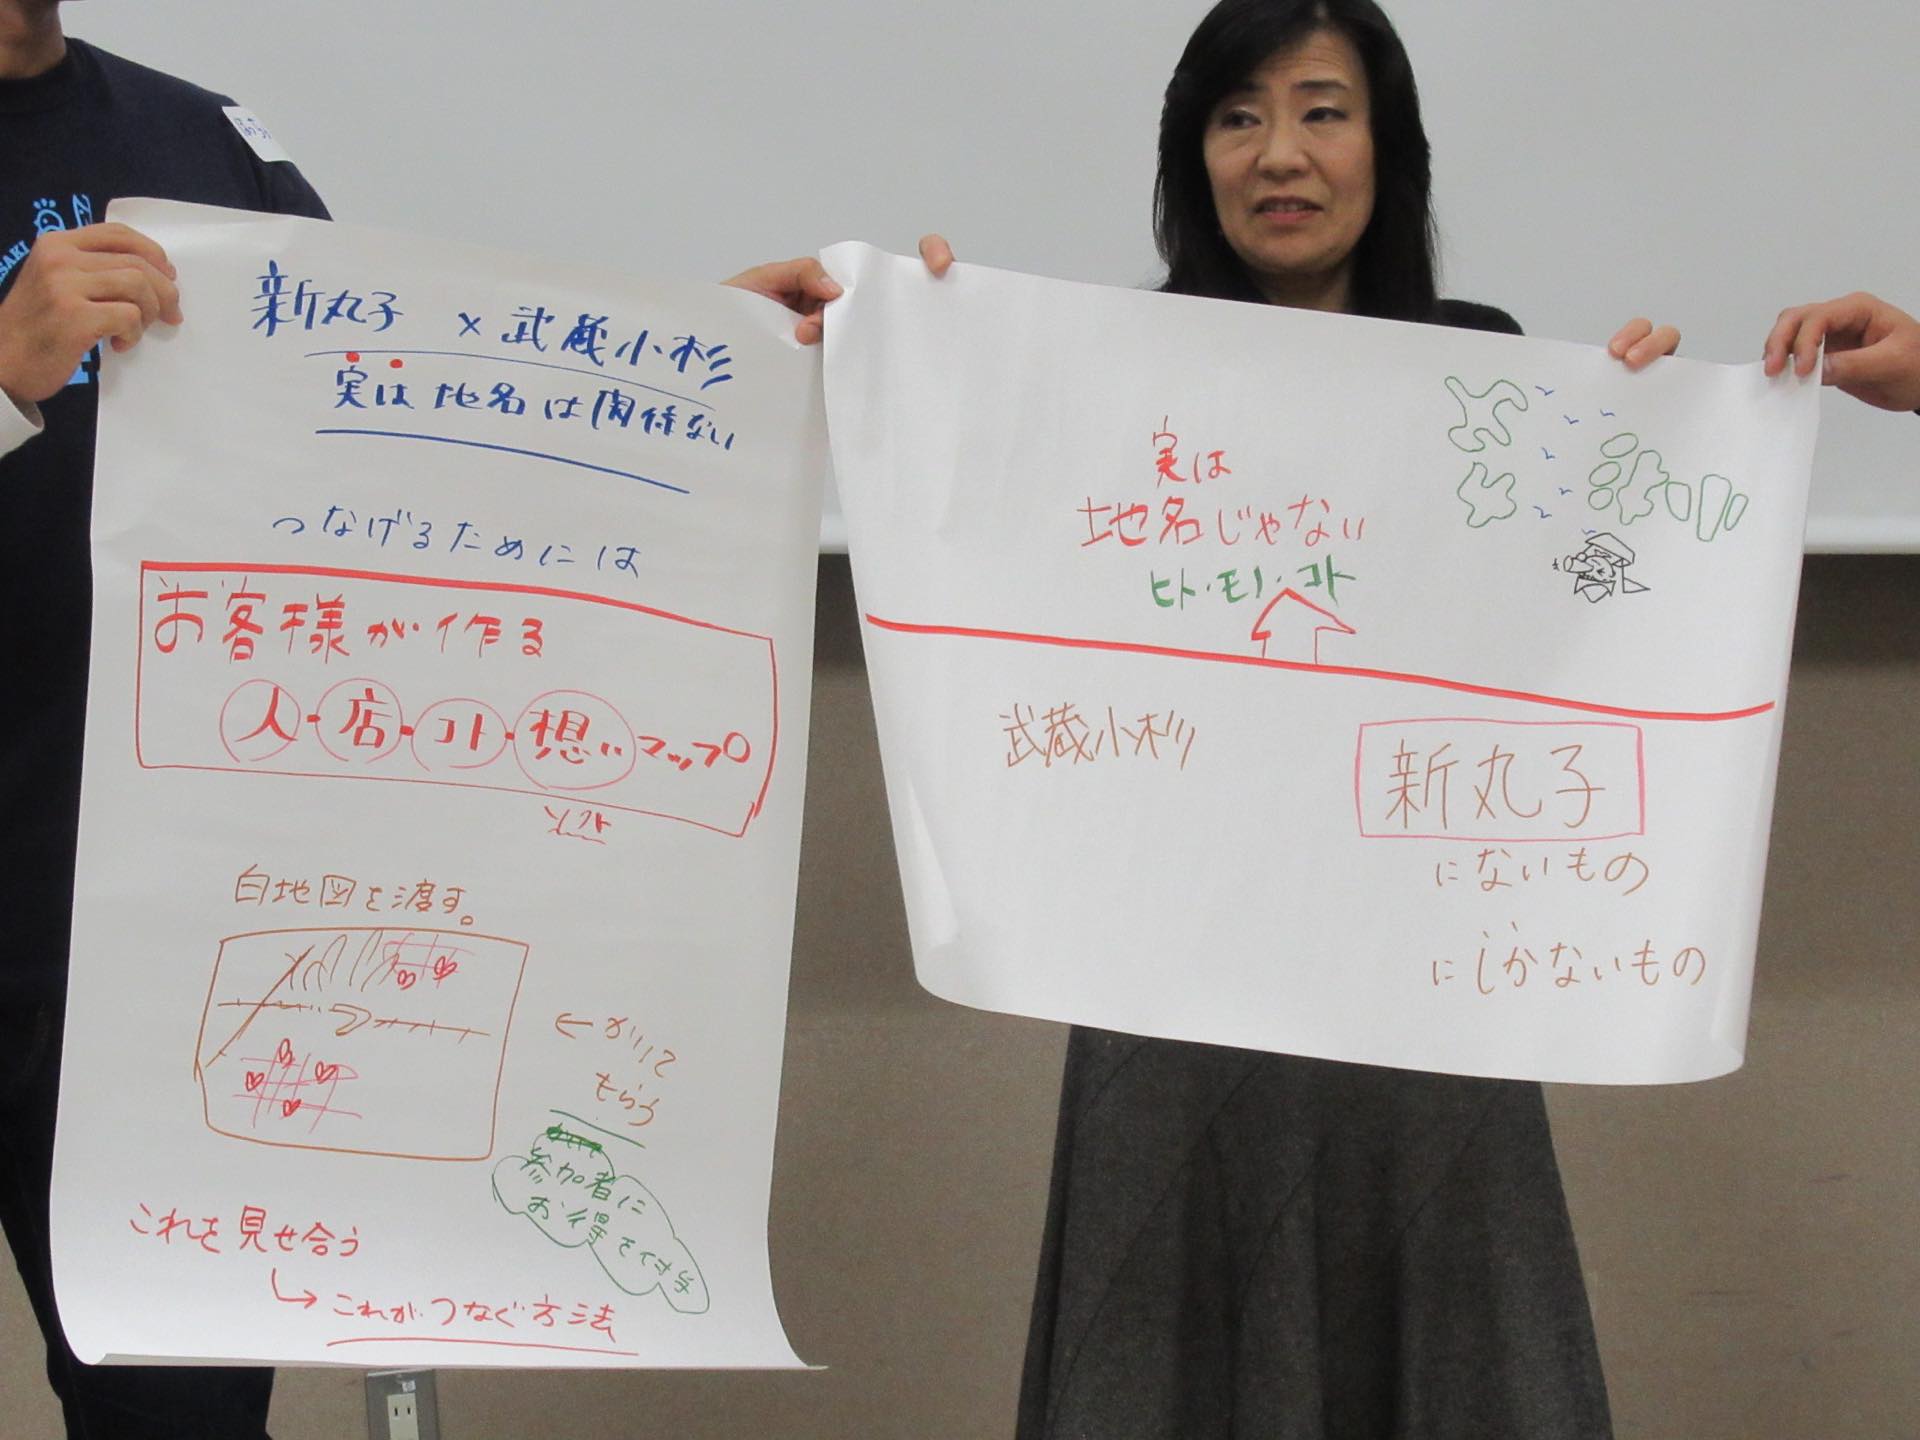 新丸子 × 武蔵小杉
実は地名は関係ない
つなげるためには
お客様が作る
人・店・コト・想いマップ
ソフト
白地図を渡す。
← かいて
もらう
参加者に
お得を付与
これを見せ合う
↳ これがつなぐ方法
実は
地名じゃない
ヒト・モノ・コト
武蔵小杉
新丸子
にないもの
にしかないもの